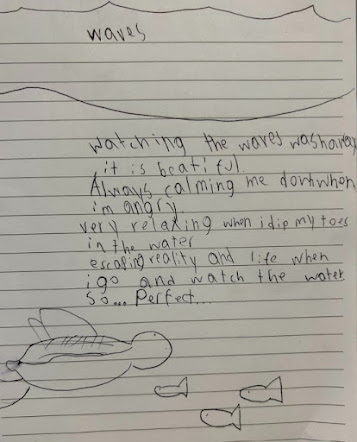 waves
watching the waves washaway
it is beatiful.
Always calming me dontwhen
i'm angry.
very relaxing when i dip my toes
in the water
escaping reality and life when
i go and watch the water
So... Perfect...